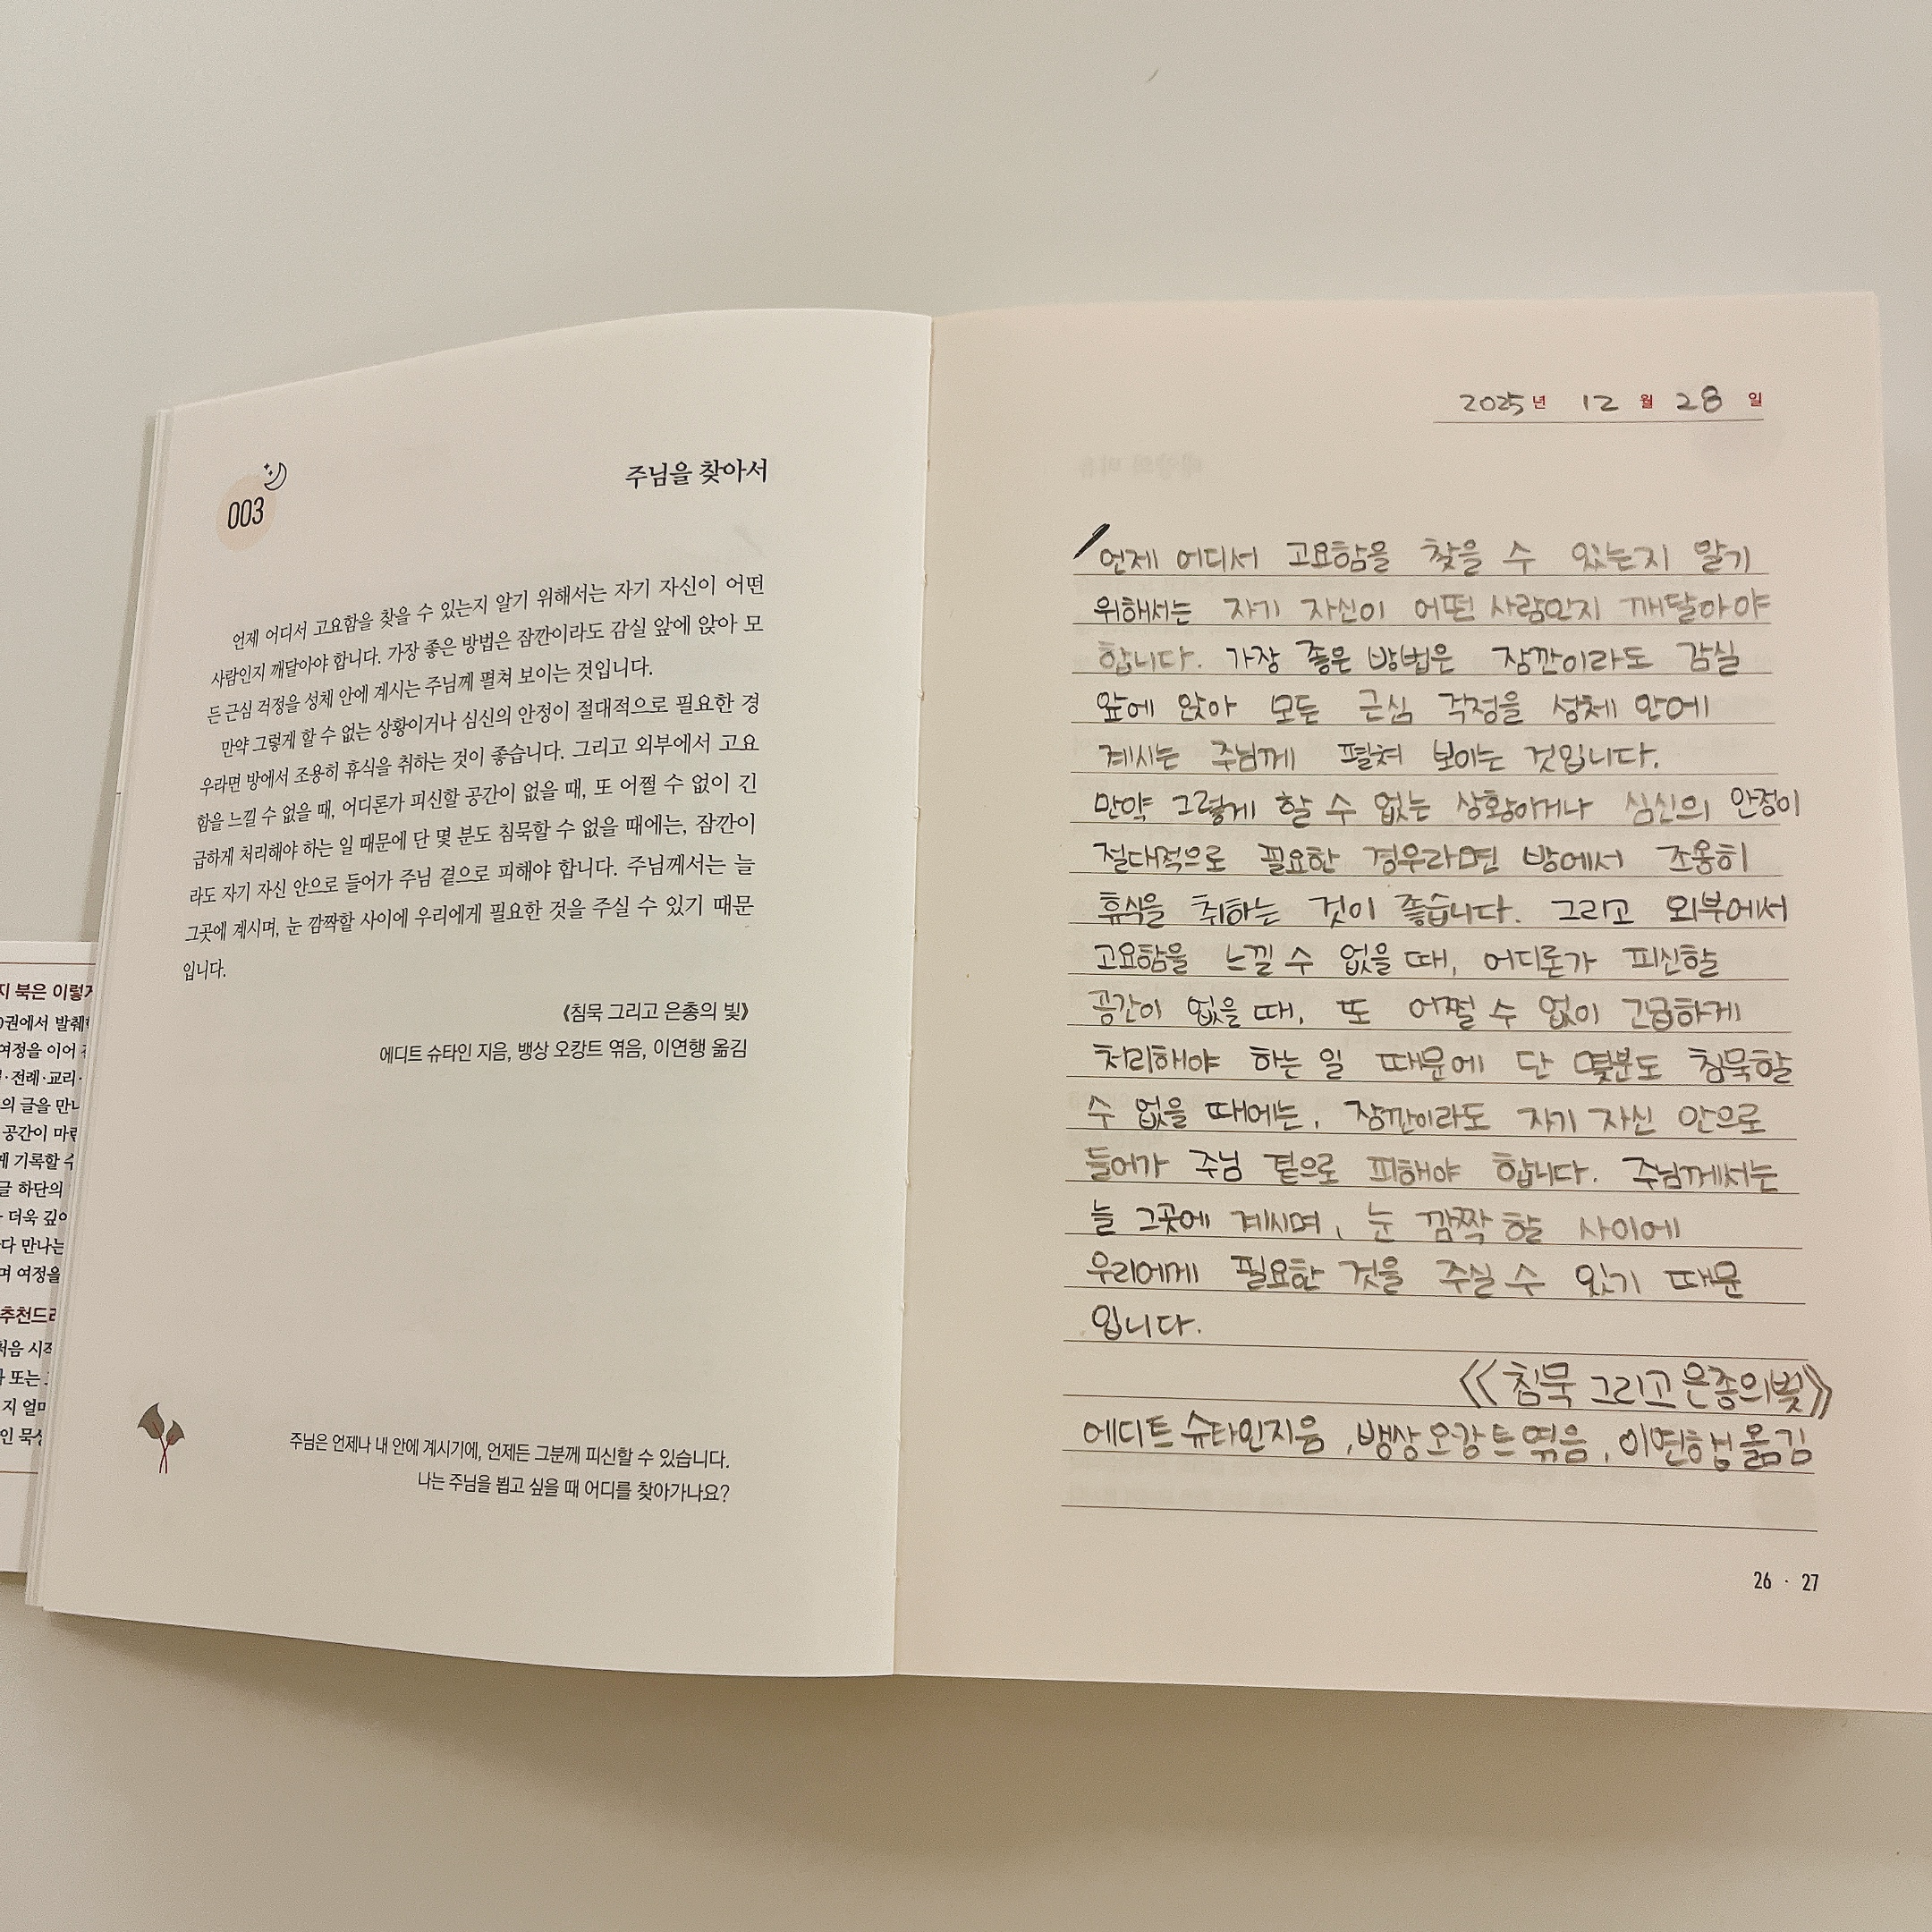 003
주님을 찾아서
언제 어디서 고요함을 찾을 수 있는지 알기 위해서는 자기 자신이 어떤
사람인지 깨달아야 합니다. 가장 좋은 방법은 잠깐이라도 감실 앞에 앉아 모
든 근심 걱정을 성체 안에 계시는 주님께 펼쳐 보이는 것입니다.
만약 그렇게 할 수 없는 상황이거나 심신의 안정이 절대적으로 필요한 경
우라면 방에서 조용히 휴식을 취하는 것이 좋습니다. 그리고 외부에서 고요
함을 느낄 수 없을 때, 어디론가 피신할 공간이 없을 때, 또 어쩔 수 없이 긴
급하게 처리해야 하는 일 때문에 단 몇 분도 침묵할 수 없을 때에는, 잠깐이
라도 자기 자신 안으로 들어가 주님 곁으로 피해야 합니다. 주님께서는 늘
그곳에 계시며, 눈 깜짝할 사이에 우리에게 필요한 것을 주실 수 있기 때문
입니다.
《침묵 그리고 은총의 빛》
에디트 슈타인 지음, 뱅상 오캉트 엮음, 이연행 옮김
주님은 언제나 내 안에 계시기에, 언제든 그분께 피신할 수 있습니다.
나는 주님을 뵙고 싶을 때 어디를 찾아가나요?
2025년 12월 28일
언제 어디서 고요함을 찾을 수 있는지 알기
위해서는 자기 자신이 어떤 사람인지 깨달아야
합니다. 가장 좋은 방법은 잠깐이라도 감실
앞에 앉아 모든 근심 걱정을 성체 안에
계시는 주님께 펼쳐 보이는 것입니다.
만약 그렇게 할 수 없는 상황이거나 심신의 안정이
절대적으로 필요한 경우라면 방에서 조용히
휴식을 취하는 것이 좋습니다. 그리고 외부에서
고요함을 느낄 수 없을 때, 어디론가 피신할
공간이 없을 때, 또 어쩔 수 없이 긴급하게
처리해야 하는 일 때문에 단 몇분도 침묵할
수 없을 때에는, 잠깐이라도 자기 자신 안으로
들어가 주님 곁으로 피해야 합니다. 주님께서는
늘 그곳에 계시며, 눈 깜짝 할 사이에
우리에게 필요한 것을 주실 수 있기 때문
입니다.
《침묵 그리고 은총의 빛》
에디트 슈타인지음, 뱅상 오캉트 엮음, 이연행 옮김
26 · 27
지 북은 이렇게
권에서 발췌
여정을 이어
·전례·교리·
의 글을 만나
공간이
게 기록할 수
글 하단의
더욱 깊이
다 만나는
며 여정을
추천드리
처음 시작
또는
지
인